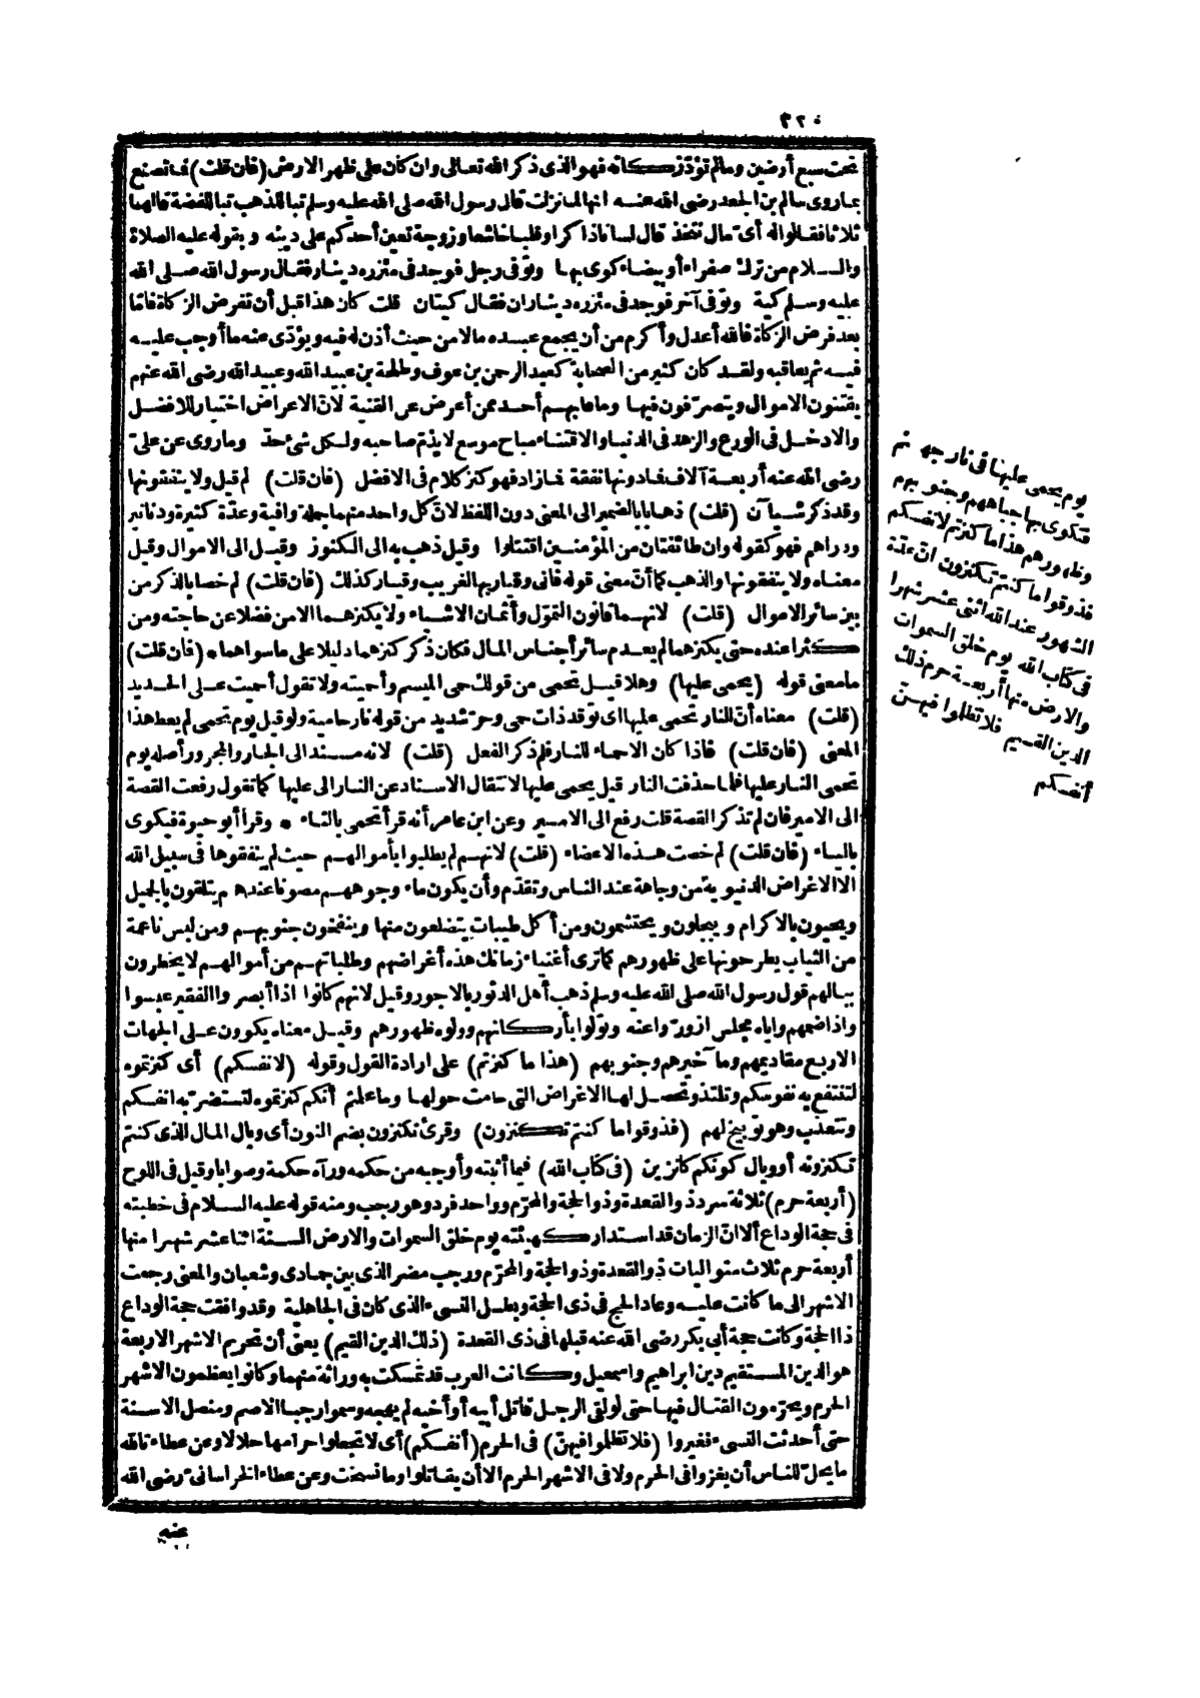 ٤٢٠
تحت سبع أرضين وما لم تؤدّ زكانه فهو الذى ذكر الله تعالى وان كان على ظهر الارض (فان قلت) فما تصنع
بما روى سالم بن الجعد رضى الله عنه انها لما نزلت قال رسول الله صلى الله عليه وسلم تبا للذهب تبا للفضة قالها
ثلاثا فقالوا له أىّ مال نتخذ قال لسانا ذاكرا وقلبا خاشعا وزوجة تعين أحدكم على دينه وبقوله عليه الصلاة
والسلام من ترك صفراء أو بيضاء كوى بها وتوفى رجل فوجد فى مئزره دينار فقال رسول الله صلى الله
عليه وسلم كية وتوفى آخر فوجد فى مئزره ديناران فقال كيتان قلت كان هذا قبل أن تفرض الزكاة فاما
بعد فرض الزكاة فالله أعدل وأكرم من أن يجمع عبده مالا من حيث أذن له فيه ويؤدّى عنه ما أوجب عليه
فيه ثم يعاقبه ولقد كان كثير من الصحابة كعبد الرحمن بن عوف وطلحة بن عبيد الله وعبيد الله رضى الله عنهم
يقتنون الاموال ويتصرّفون فيها وما عابهم أحد ممن أعرض عن القنية لانّ الاعراض اختيار للافضل
والادخل فى الورع والزهد فى الدنيا والاقتناء مباح موسع لا يذمّ صاحبه ولكل شئ حدّ وما روى عن علىّ
رضى الله عنه أربعة آلاف فما دونها نفقة فما زاد فهو كنز كلام فى الافضل (فان قلت) لم قيل ولا ينفقونها
وقد ذكر شيآن (قلت) ذهابا بالضمير الى المعنى دون اللفظ لانّ كل واحد منهما جملة وافية وعدّة كثيرة ودنانير
ودراهم فهو كقوله وان طائفتان من المؤمنين اقتتلوا وقيل ذهب به الى الكنوز وقيل الى الاموال وقيل
معناه ولا ينفقونها والذهب كما أنّ معنى قوله فانى وقيار بها لغريب وقيار كذلك (فان قلت) لم خصا بالذكر من
بين سائر الاموال (قلت) لانهما قانون التموّل وأثمان الاشياء ولا يكنزهما الا من فضلا عن حاجته ومن
كثرا عنده حتى يكنزهما لم يعدم سائر أجناس المال فكان ذكر كنزهما دليلا على ما سواهما * (فان قلت)
ما معنى قوله (يحمى عليها) وهلا قيل تحمى من قولك حمى الميسم وأحميته ولا تقول أحميت على الحديد
(قلت) معناه أنّ النار تحمى عليها اى توقد ذات حمى وحرّ شديد من قوله نار حامية ولو قيل يوم تحمى لم يعط هذا
المعنى (فان قلت) فاذا كان الاحماء للنار فلم ذكر الفعل (قلت) لانه مسند الى الجار والمجرور أصله يوم
تحمى النار عليها فلما حذفت النار قيل يحمى عليها لانتقال الاسناد عن النار الى عليها كما تقول رفعت القصة
الى الامير فان لم تذكر القصة قلت رفع الى الامير وعن ابن عامر أنه قرأ تحمى بالتاء * وقرأ أبو حيوة فيكوى
بالياء (فان قلت) لم خصت هذه الاعضاء (قلت) لانهم لم يطلبوا بأموالهم حيث لم ينفقوها فى سبيل الله
الا الاغراض الدنيوية من وجاهة عند الناس وتقدّم وأن يكون ماء وجوههم مصونا عندهم يتلقون بالجميل
ويحيون بالاكرام ويبجلون ويحتشمون ومن أكل طيبات يتضلعون منها وينفخون جنوبهم ومن لبس ناعمة
من الثياب يطرحونها على ظهورهم كما ترى أغنياء زمانك هذه أغراضهم وطلباتهم من أموالهم لا يخطرون
ببالهم قول رسول الله صلى الله عليه وسلم ذهب أهل الدثور بالاجور وقيل لانهم كانوا اذا أبصروا الفقير عبسوا
واذا ضمهم واياه مجلس ازورّوا عنه وتولوا بأركانهم وولوه ظهورهم وقيل معناه يكوون على الجهات
الاربع مقاديمهم ومآخيرهم وجنوبهم (هذا ما كنزتم) على ارادة القول وقوله (لانفسكم) أى كنزتموه
لتنتفع به نفوسكم وتلتذ وتحصل لها الاغراض التى حامت حولها وما علمتم أنكم كنزتموه لتستضرّ به انفسكم
وتتعذب وهو توبيخ لهم (فذوقوا ما كنتم تكنزون) وقرئ تكنزون بضم النون أى وبال المال الذى كنتم
تكنزونه أو وبال كونكم كانزين (فى كتاب الله) فيما أثبته وأوجبه من حكمه ورآه حكمة وصوابا وقيل فى اللوح
(أربعة حرم) ثلاثة سرد ذو القعدة وذو الحجة والمحرّم وواحد فرد وهو رجب ومنه قوله عليه السلام فى خطبته
فى حجة الوداع ألا انّ الزمان قد استدار كهيئته يوم خلق السموات والارض السنة اثنا عشر شهرا منها
أربعة حرم ثلاث متواليات ذو القعدة وذو الحجة والمحرّم ورجب مضر الذى بين جمادى وشعبان والمعنى رجعت
الاشهر الى ما كانت عليه وعاد الحج فى ذى الحجة وبطل النسىء الذى كان فى الجاهلية وقد وافقت حجة الوداع
ذا الحجة وكانت حجة أبى بكر رضى الله عنه قبلها فى ذى القعدة (ذلك الدين القيم) يعنى أن تحريم الاشهر الاربعة
هو الدين المستقيم دين ابراهيم واسمعيل وكانت العرب قد تمسكت به وراثة منهما وكانوا يعظمون الاشهر
الحرم ويحرّمون القتال فيها حتى لو لقى الرجل قاتل أبيه أو أخيه لم يهجه وسموا رجبا الاصم ومنصل الاسنة
حتى أحدثت النسىء فغيروا (فلا تظلموا فيهنّ) فى الحرم (أنفسكم) أى لا تجعلوا حرامها حلالا وعن عطاء تالله
ما يحلّ للناس أن يغزوا فى الحرم ولا فى الاشهر الحرم الا أن يقاتلوا وما نسخت وعن عطاء الخراسانىّ رضى الله
عنه
يوم يحمى عليها فى نار جهنم
فتكوى بها جباههم وجنوبهم
وظهورهم هذا ما كنزتم لانفسكم
فذوقوا ما كنتم تكنزون انّ عدّة
الشهور عند الله اثنى عشر شهرا
فى كتاب الله يوم خلق السموات
والارض منها أربعة حرم ذلك
الدين القيم فلا تظلموا فيهنّ
أنفسكم